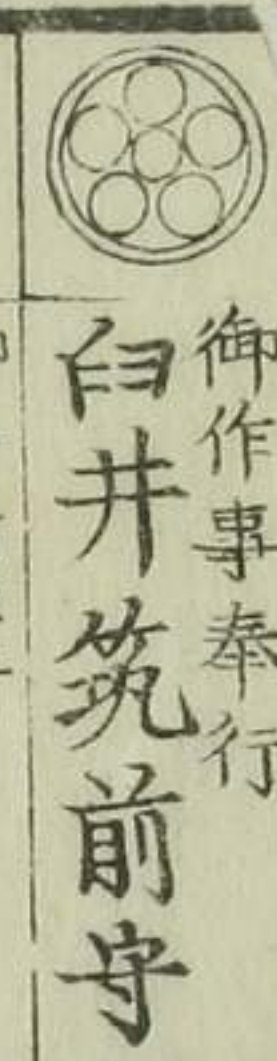 御作事奉行
臼井筑前守